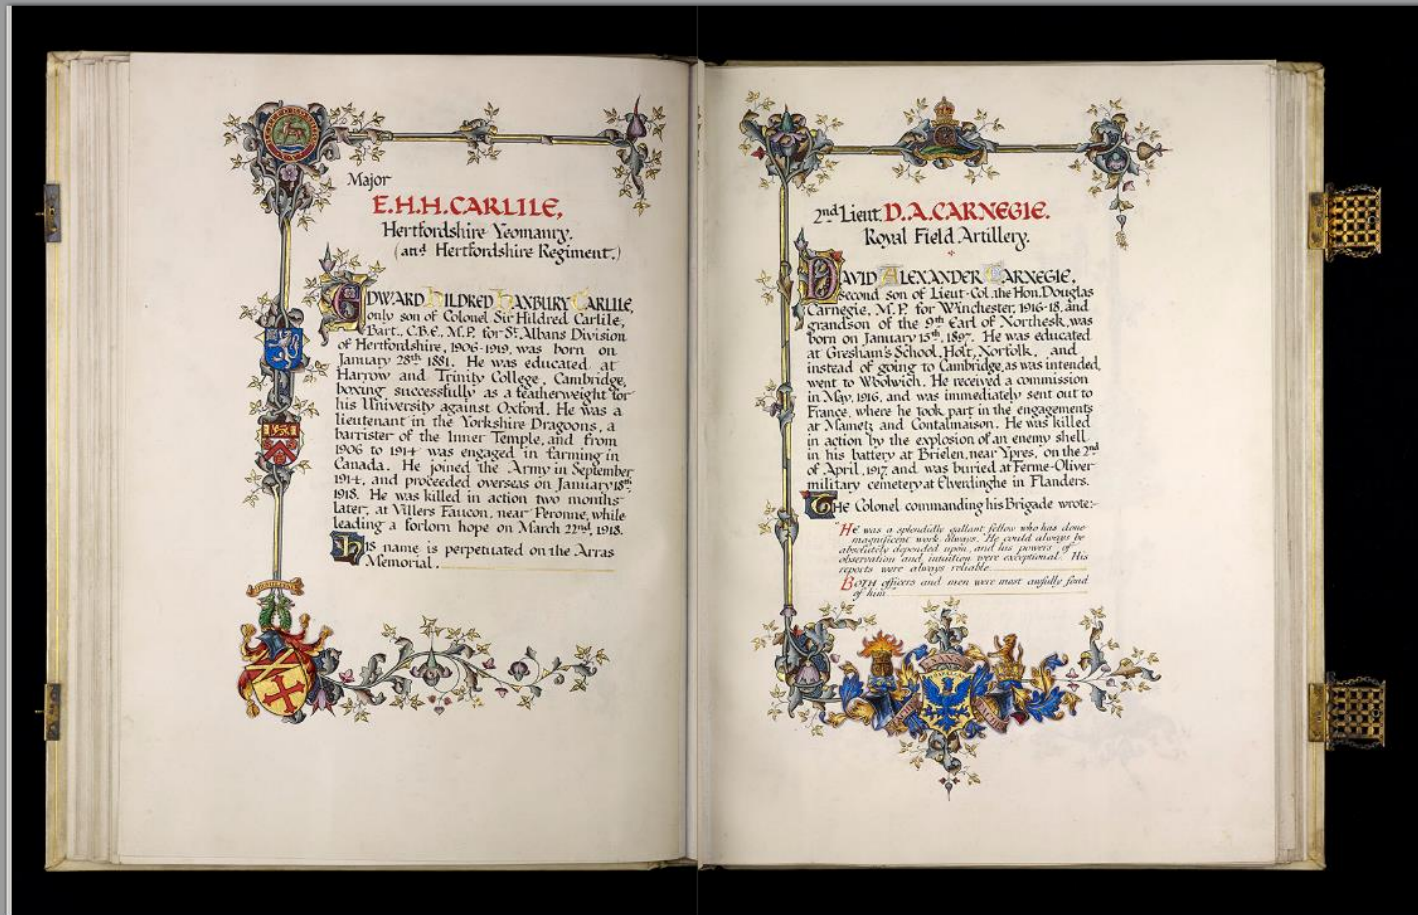 Major
E.H.H.CARLILE,
Hertfordshire Yeomanry.
(and Hertfordshire Regiment.)
EDWARD HILDRED HANBURY CARLILE,
only son of Colonel Sir Hildred Carlile,
Bart., C.B.E., M.P. for St. Albans Division
of Hertfordshire, 1906-1919, was born on
January 28th 1881. He was educated at
Harrow and Trinity College, Cambridge,
boxing successfully as a featherweight for
his University against Oxford. He was a
lieutenant in the Yorkshire Dragoons, a
barrister of the Inner Temple, and from
1906 to 1914 was engaged in farming in
Canada. He joined the Army in September
1914, and proceeded overseas on January 18th
1918. He was killed in action two months
later, at Villers Faucon, near Peronne, while
leading a forlorn hope on March 22nd, 1918.
His name is perpetuated on the Arras
Memorial.
2nd Lieut. D.A.CARNEGIE.
Royal Field Artillery.
DAVID ALEXANDER CARNEGIE,
second son of Lieut-Col. the Hon. Douglas
Carnegie, M.P. for Winchester, 1916-18, and
grandson of the 9th Earl of Northesk, was
born on January 15th, 1897. He was educated
at Gresham's School, Holt, Norfolk, and
instead of going to Cambridge, as was intended,
went to Woolwich. He received a commission
in May, 1916, and was immediately sent out to
France, where he took part in the engagements
at Mametz and Contalmaison. He was killed
in action by the explosion of an enemy shell
in his battery at Brielen, near Ypres, on the 2nd
of April, 1917, and was buried at Ferme-Olivier
military cemetery at Elverdinghe in Flanders.
The Colonel commanding his Brigade wrote:-
"He was a splendidly gallant fellow who has done
magnificent work always. He could always be
absolutely depended upon, and his powers of
observation and intuition were exceptional. His
reports were always reliable.
BOTH officers and men were most awfully fond
of him